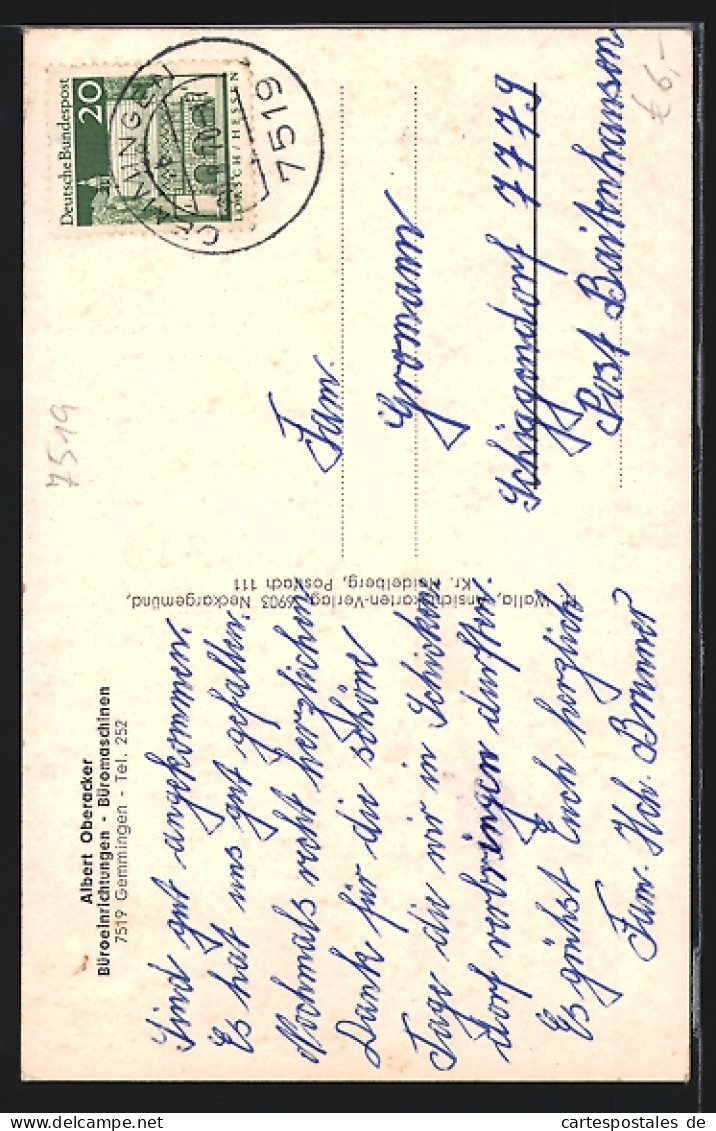 Albert Oberacker
Büroeinrichtungen - Büromaschinen
7519 Gemmingen - Tel. 252
Sind gut angekommen.
Es hat uns gut gefallen.
Nochmals recht herzlichen
Dank für die schöne
Tage die wir in Schicken
dorf verbringen durften.
Es grühst Euch herzlich
Fam. Hch. Brunner
H. Walla, Ansichtskarten-Verlag, 6903 Neckargemünd,
Kr. Heidelberg, Postfach 111
7519
Deutsche Bundespost
20
LORSCH/HESSEN
GEMMINGEN
7519
Fam.
Gromann
Schiggendorf 7779
Post Baitenhausen
€ 6,-
cartespostales de